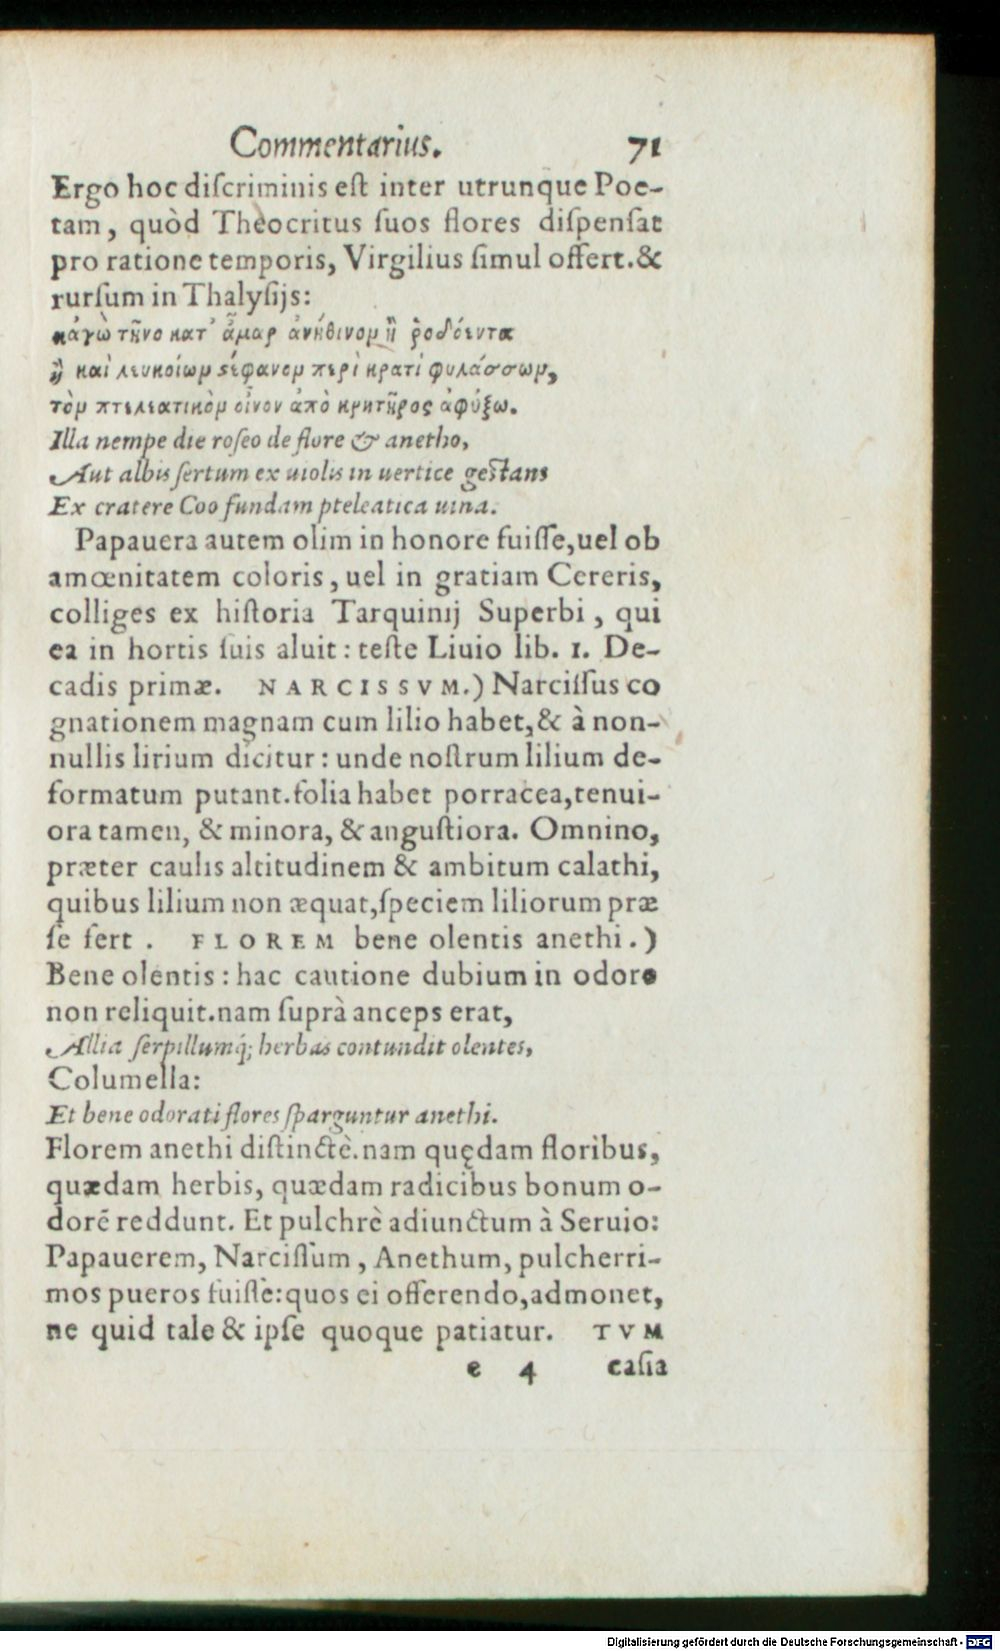 Commentarius. 71
Ergo hoc diſcriminis eſt inter utrunque Poe-
tam, quòd Theocritus ſuos flores diſpenſat
pro ratione temporis, Virgilius ſimul offert. &
rurſum in Thalyſijs:
κἀγὼ τῆνο κατ' ἆμαρ ἀνήθινον ἢ ῥοδόεντα
ἢ καὶ λευκοίων στέφανον περὶ κρατὶ φυλάσσων,
τὸν πτελεατικὸν οἶνον ἀπὸ κρητῆρος ἀφύξω.
Illa nempe die roſeo de flore & anetho,
Aut albis ſertum ex uiolis in uertice geſtans
Ex cratere Coo fundam pteleatica uina.
Papauera autem olim in honore fuiſſe, uel ob
amœnitatem coloris, uel in gratiam Cereris,
colliges ex hiſtoria Tarquinij Superbi, qui
ea in hortis ſuis aluit: teſte Liuio lib. 1. De-
cadis primæ. NARCISSVM.) Narciſſus co
gnationem magnam cum lilio habet, & à non-
nullis lirium dicitur: unde noſtrum lilium de-
formatum putant. folia habet porracea, tenui-
ora tamen, & minora, & anguſtiora. Omnino,
præter caulis altitudinem & ambitum calathi,
quibus lilium non æquat, ſpeciem liliorum præ
ſe fert. FLOREM bene olentis anethi.)
Bene olentis: hac cautione dubium in odore
non reliquit. nam ſuprà anceps erat,
Allia ſerpillumq́; herbas contundit olentes,
Columella:
Et bene odorati flores ſparguntur anethi.
Florem anethi diſtinctè. nam quędam floribus,
quædam herbis, quædam radicibus bonum o-
dorē reddunt. Et pulchrè adiunctum à Seruio:
Papauerem, Narciſſum, Anethum, pulcherri-
mos pueros fuiſſe: quos ei offerendo, admonet,
ne quid tale & ipſe quoque patiatur. TVM
e 4 caſia
Digitalisierung gefördert durch die Deutsche Forschungsgemeinschaft - DFG